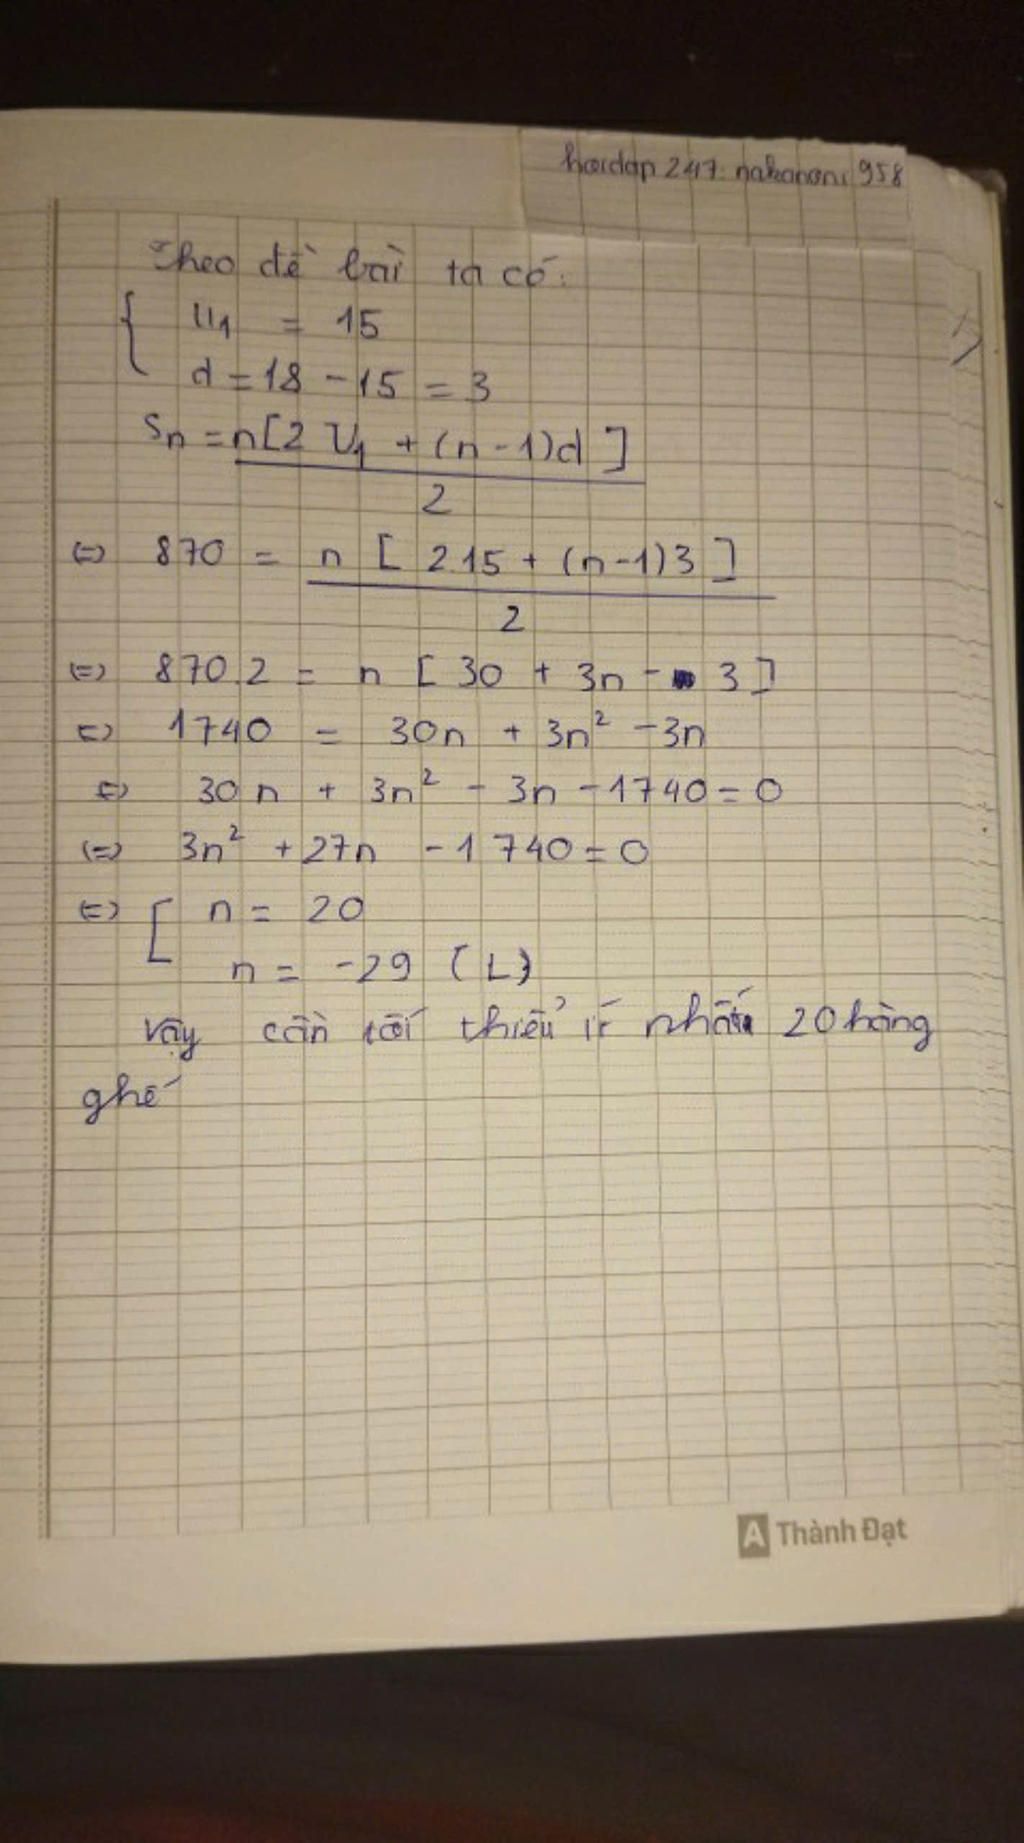 hoidap 247: nakanoni 958
Theo đề bài ta có:
{ u1 = 15
d = 18 - 15 = 3
Sn = n[2 U1 + (n - 1)d ]
2
(=) 870 = n [ 2.15 + (n-1)3 ]
2
(=) 870.2 = n [ 30 + 3n - 3 ]
(=) 1740 = 30n + 3n² - 3n
(=) 30n + 3n² - 3n - 1740 = 0
(=) 3n² + 27n - 1740 = 0
(=) [ n = 20
n = -29 (L)
Vậy cần tối thiểu ít nhất 20 hàng
ghế
A Thành Đạt